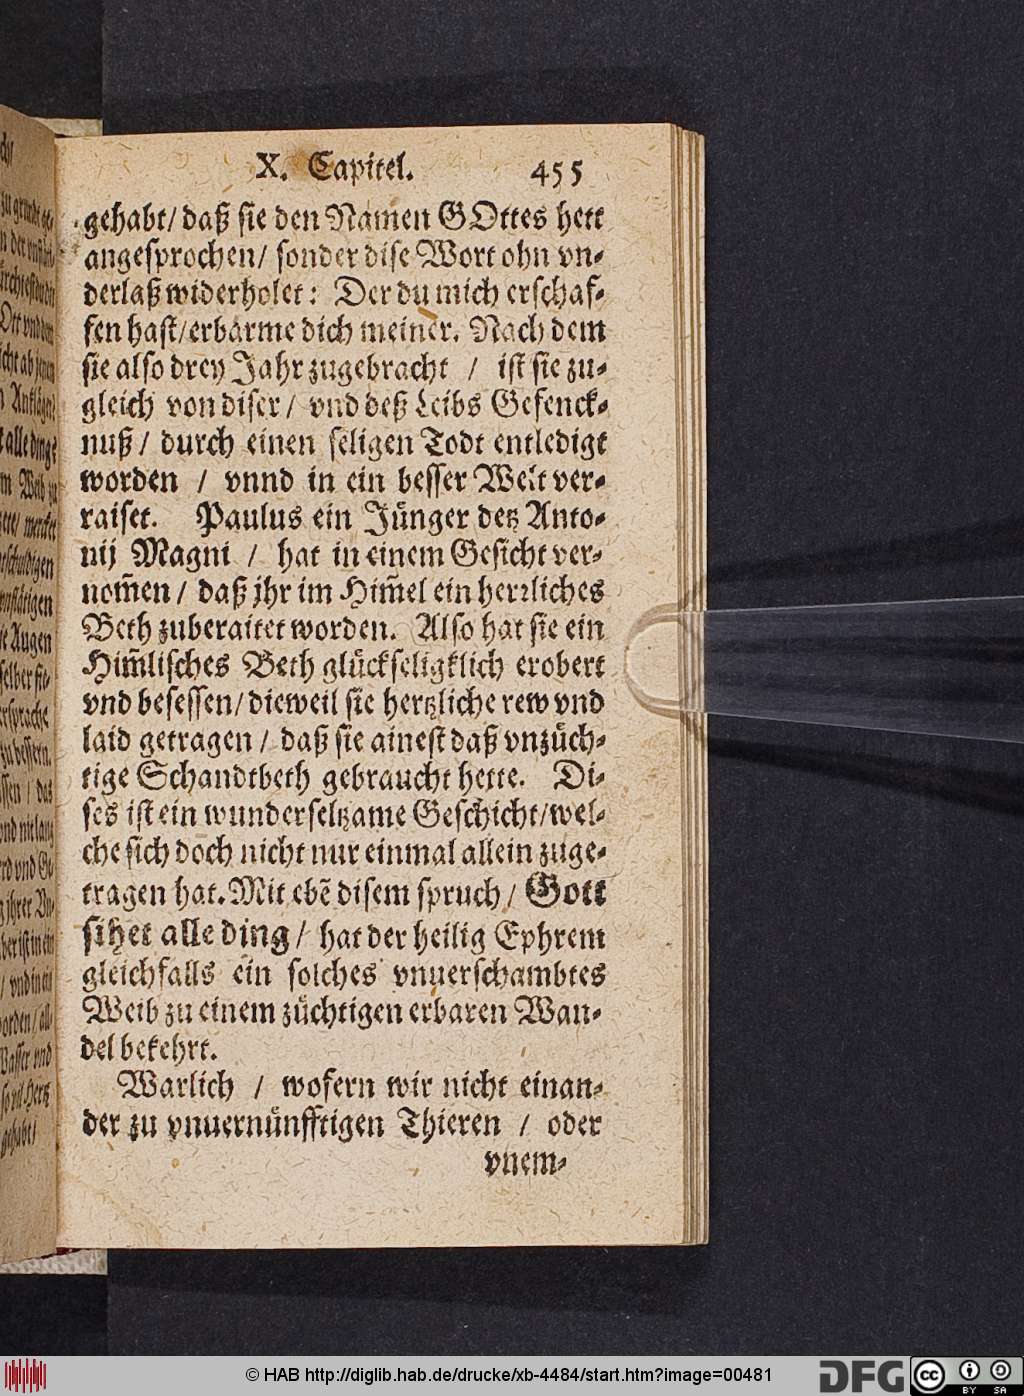 X. Capitel. 455
gehabt/ daß sie den Namen GOttes hett
angesprochen/ sonder dise Wort ohn vn-
derlaß widerholet: Der du mich erschaf-
fen hast/ erbarme dich meiner. Nach dem
sie also drey Jahr zugebracht / ist sie zu-
gleich von diser/ vnd deß Leibs Gefenck-
nuß/ durch einen seligen Todt entledigt
worden / vnnd in ein besser Welt ver-
raiset. Paulus ein Jünger detz Anto-
nij Magni / hat in einem Gesicht ver-
nom̃en/ daß jhr im Him̃el ein herꝛliches
Beth zuberaitet worden. Also hat sie ein
Him̃lisches Beth glückseligklich erobert
vnd besessen/ dieweil sie hertzliche rew vnd
laid getragen/ daß sie ainest daß vnzüch-
tige Schandtbeth gebraucht hette. Di-
ses ist ein wunderseltzame Geschicht/ wel-
che sich doch nicht nur einmal allein zuge-
tragen hat. Mit ebẽ disem spruch/ Gott
sihet alle ding/ hat der heilig Ephrem
gleichfalls ein solches vnuerschambtes
Weib zu einem züchtigen erbaren Wan-
del bekehrt.
Warlich / wofern wir nicht einan-
der zu vnuernünfftigen Thieren / oder
vnem-
© HAB http://diglib.hab.de/drucke/xb-4484/start.htm?image=00481
DFG
cc BY SA